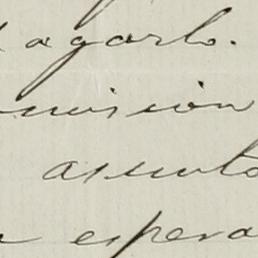 agarlo.
mision
asunto
espera